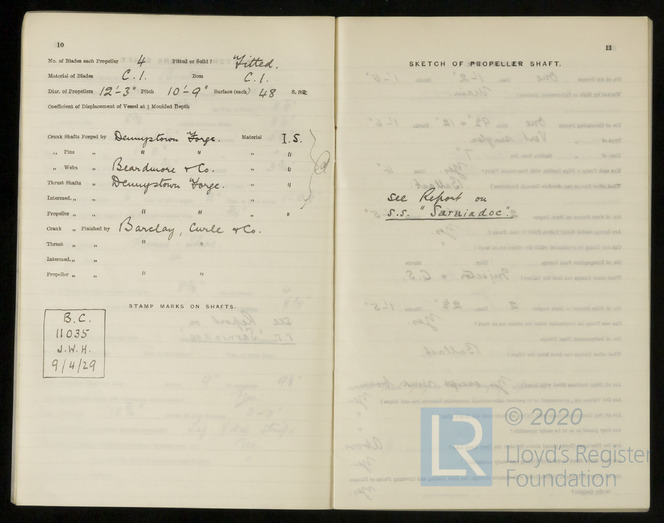 10
No. of Blades each Propeller 4 Fitted or Solid? Fitted.
Material of Blades C.I. Boss C.I.
Diar. of Propellers 12'-3" Pitch 10'-9" Surface (each) 48 S. ft.
Coefficient of Displacement of Vessel at ¾ Moulded Depth
Crank Shafts Forged by Dennystown Forge. Material I.S.
„ Pins „ " " „ "
„ Webs „ Beardmore & Co. „ "
Thrust Shafts „ Dennystown Forge. „ "
Intermed. „ „ „
Propeller „ „ " " „ "
Crank „ Finished by Barclay, Curle & Co.
Thrust „ „ " "
Intermed. „ „
Propeller „ „ " "
STAMP MARKS ON SHAFTS.
B.C.
11035
J.W.H.
9/4/29
11
SKETCH OF PROPELLER SHAFT.
See Report on
S.S. "Sarniadoc".
© 2020
LR
Lloyd's Register
Foundation